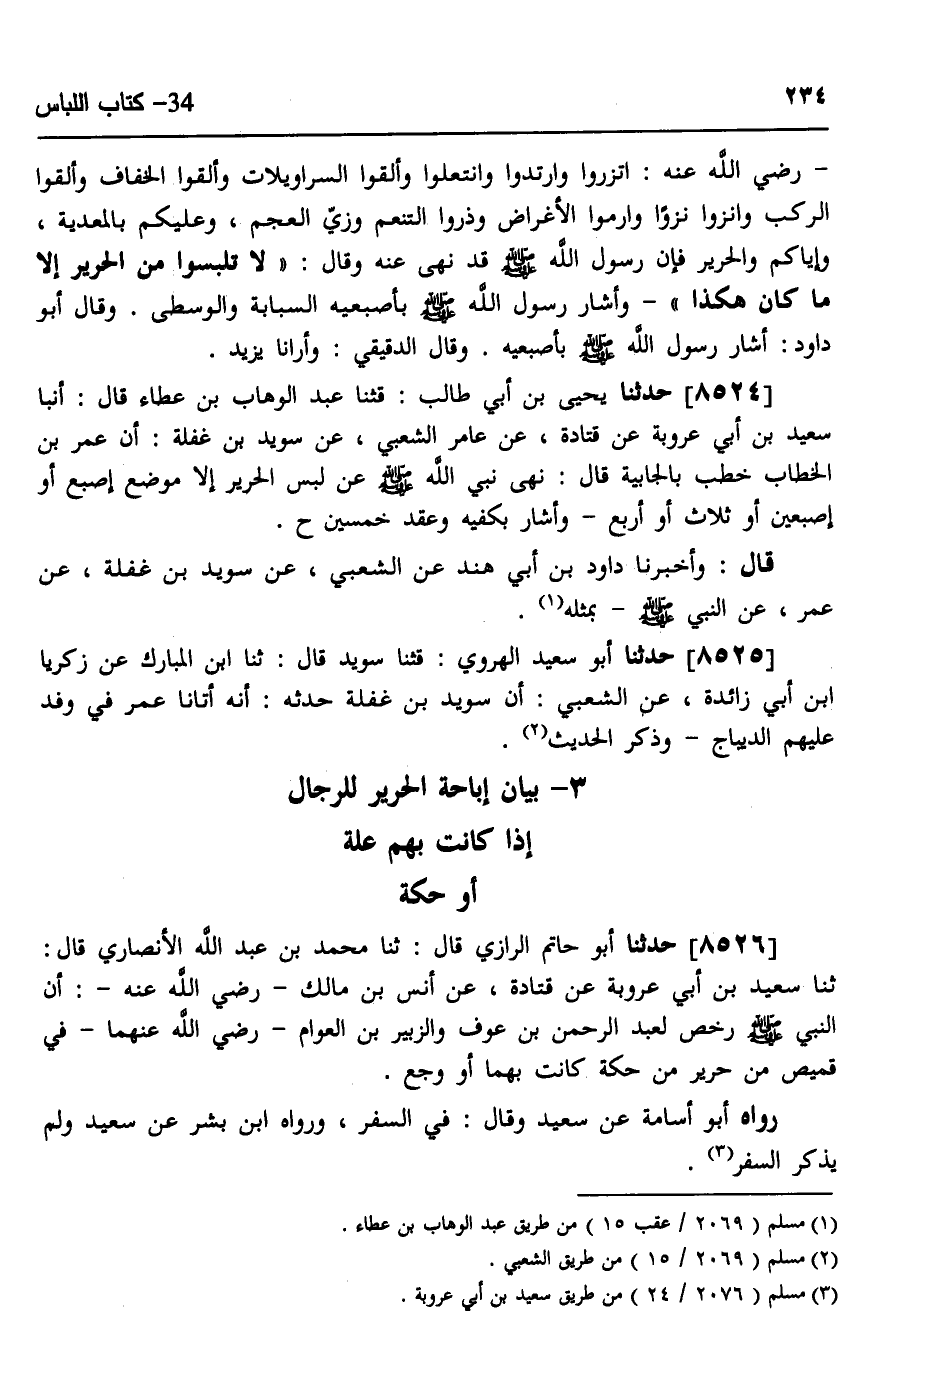 ٢٣٤
34- كتاب اللباس
- رضي اللَّه عنه : اتزروا وارتدوا وانتعلوا وألقوا السراويلات وألقوا الخفاف وألقوا
الركب وانزوا نزوًا وارموا الأغراض وذروا التنعم وزيّ العجم ، وعليكم بالمعدية ،
وإياكم والحرير فإن رسول اللَّه ﷺ قد نهى عنه وقال : « لا تلبسوا من الحرير إلا
ما كان هكذا » - وأشار رسول اللَّه ﷺ بأصبعيه السبابة والوسطى . وقال أبو
داود : أشار رسول اللَّه ﷺ بأصبعيه . وقال الدقيقي : وأرانا يزيد .
[٨٥٢٤] حدثنا يحيى بن أبي طالب : قثنا عبد الوهاب بن عطاء قال : أنبا
سعيد بن أبي عروبة عن قتادة ، عن عامر الشعبي ، عن سويد بن غفلة : أن عمر بن
الخطاب خطب بالجابية قال : نهى نبي اللَّه ﷺ عن لبس الحرير إلا موضع إصبع أو
إصبعين أو ثلاث أو أربع - وأشار بكفيه وعقد خمسين ح .
قال : وأخبرنا داود بن أبي هند عن الشعبي ، عن سويد بن غفلة ، عن
عمر ، عن النبي ﷺ - بمثله(١) .
[٨٥٢٥] حدثنا أبو سعيد الهروي : قثنا سويد قال : ثنا ابن المبارك عن زكريا
ابن أبي زائدة ، عن الشعبي : أن سويد بن غفلة حدثه : أنه أتانا عمر في وفد
عليهم الديباج - وذكر الحديث(٢) .
٣- بيان إباحة الحرير للرجال
إذا كانت بهم علة
أو حكة
[٨٥٢٦] حدثنا أبو حاتم الرازي قال : ثنا محمد بن عبد اللَّه الأنصاري قال :
ثنا سعيد بن أبي عروبة عن قتادة ، عن أنس بن مالك - رضي اللَّه عنه - : أن
النبي ﷺ رخص لعبد الرحمن بن عوف والزبير بن العوام - رضي اللَّه عنهما - في
قميص من حرير من حكة كانت بهما أو وجع .
رواه أبو أسامة عن سعيد وقال : في السفر ، ورواه ابن بشر عن سعيد ولم
يذكر السفر(٣) .
(١) مسلم ( ٢٠٦٩ / عقب ١٥ ) من طريق عبد الوهاب بن عطاء .
(٢) مسلم ( ٢٠٦٩ / ١٥ ) من طريق الشعبي .
(٣) مسلم ( ٢٠٧٦ / ٢٤ ) من طريق سعيد بن أبي عروبة .